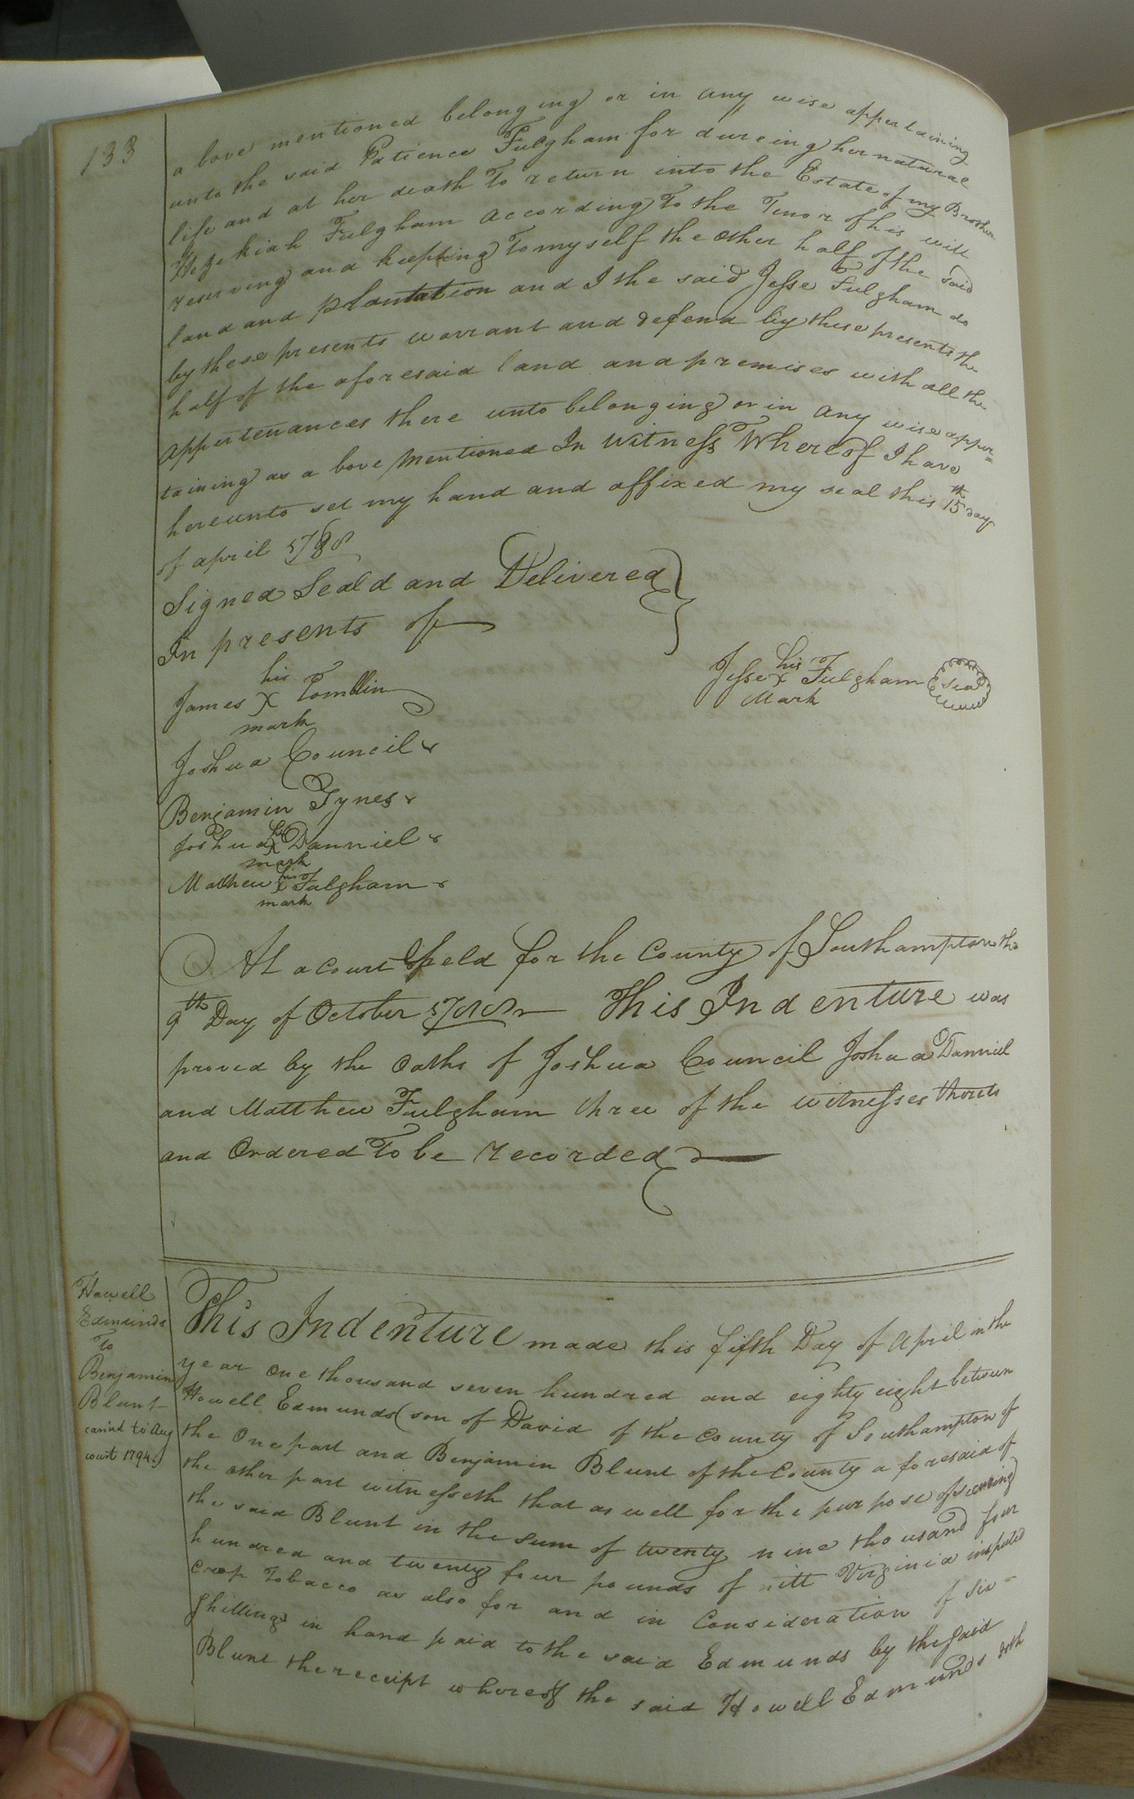 133
a bove mentioned belonging or in any wise appertaining
unto the said Patience Fulgham for dureing her natural
life and at her death To return into the Estate of my Brother
Hezekiah Fulgham according To the Tenor of his will
reserving and keeping To myself the other half of the said
land and plantation and I the said Jesse Fulgham do
by these presents warrant and defend by these presents the
half of the aforesaid land and premises with all the
appertenances there unto belonging or in any wise apper=
taining as a bove mentioned In Witness Whereof I have
hereunto set my hand and affixed my seal this 15th day
of april 1788
Signed Seald and Delivered
In presents of
his
James X Tomblin
mark
Jesse his X Fulgham seal
Mark
Joshua Council
Benjamin Tynes
Joshua his X Danniel
mark
Mathew his X Fulgham
mark
At a court Held for the County of Southampton the
9th Day of October 1788 This Indenture was
proved by the oaths of Joshua Council Joshua Danniel
and Matthew Fulgham three of the witnesses thereto
and Ordered To be recorded
Howell
Edmunds
To
Benjamin
Blunt
to Aug
court 1794
This Indenture made this fifth Day of April in the
year one thousand seven hundred and eighty eight between
Howell Edmunds (son of David of the County of Southampton of
the One part and Benjamin Blunt of the County a foresaid of
the other part witnesseth that as well for the purpose of securing
the said Blunt in the sum of twenty nine thousand four
hundred and twenty four pounds of nett Virginia inspected
Crop Tobacco as also for and in Consideration of Six=
Shillings in hand paid to the said Edmunds by the said
Blunt the receipt whereof the said Howell Edmunds doth